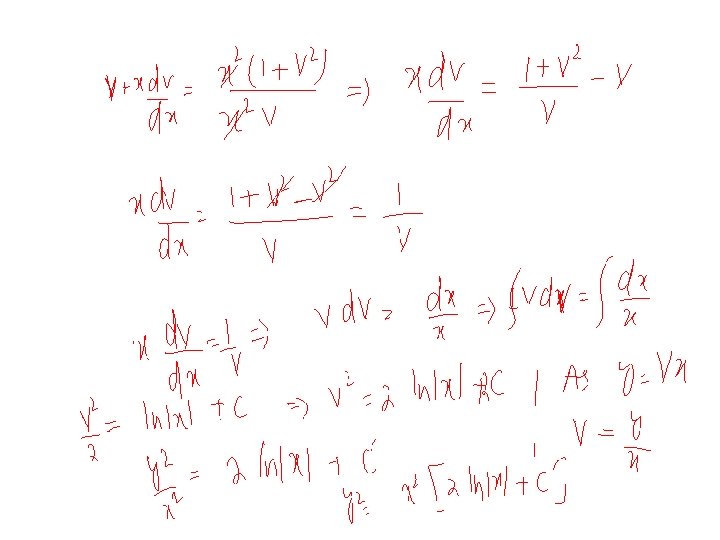 V + x dv/dx = x²(1+V²)/x²V ⇒ x dv/dx = (1+V²)/V − V
x dv/dx = (1+V²−V²)/V = 1/V
x dv/dx = 1/V ⇒ V dV = dx/x ⇒ ∫V dv = ∫dx/x
V²/2 = ln|x| + C ⇒ V² = 2 ln|x| + 2C | As y = Vx
y²/x² = 2 ln|x| + C' y² = x² [2 ln|x| + C'] V = y/x